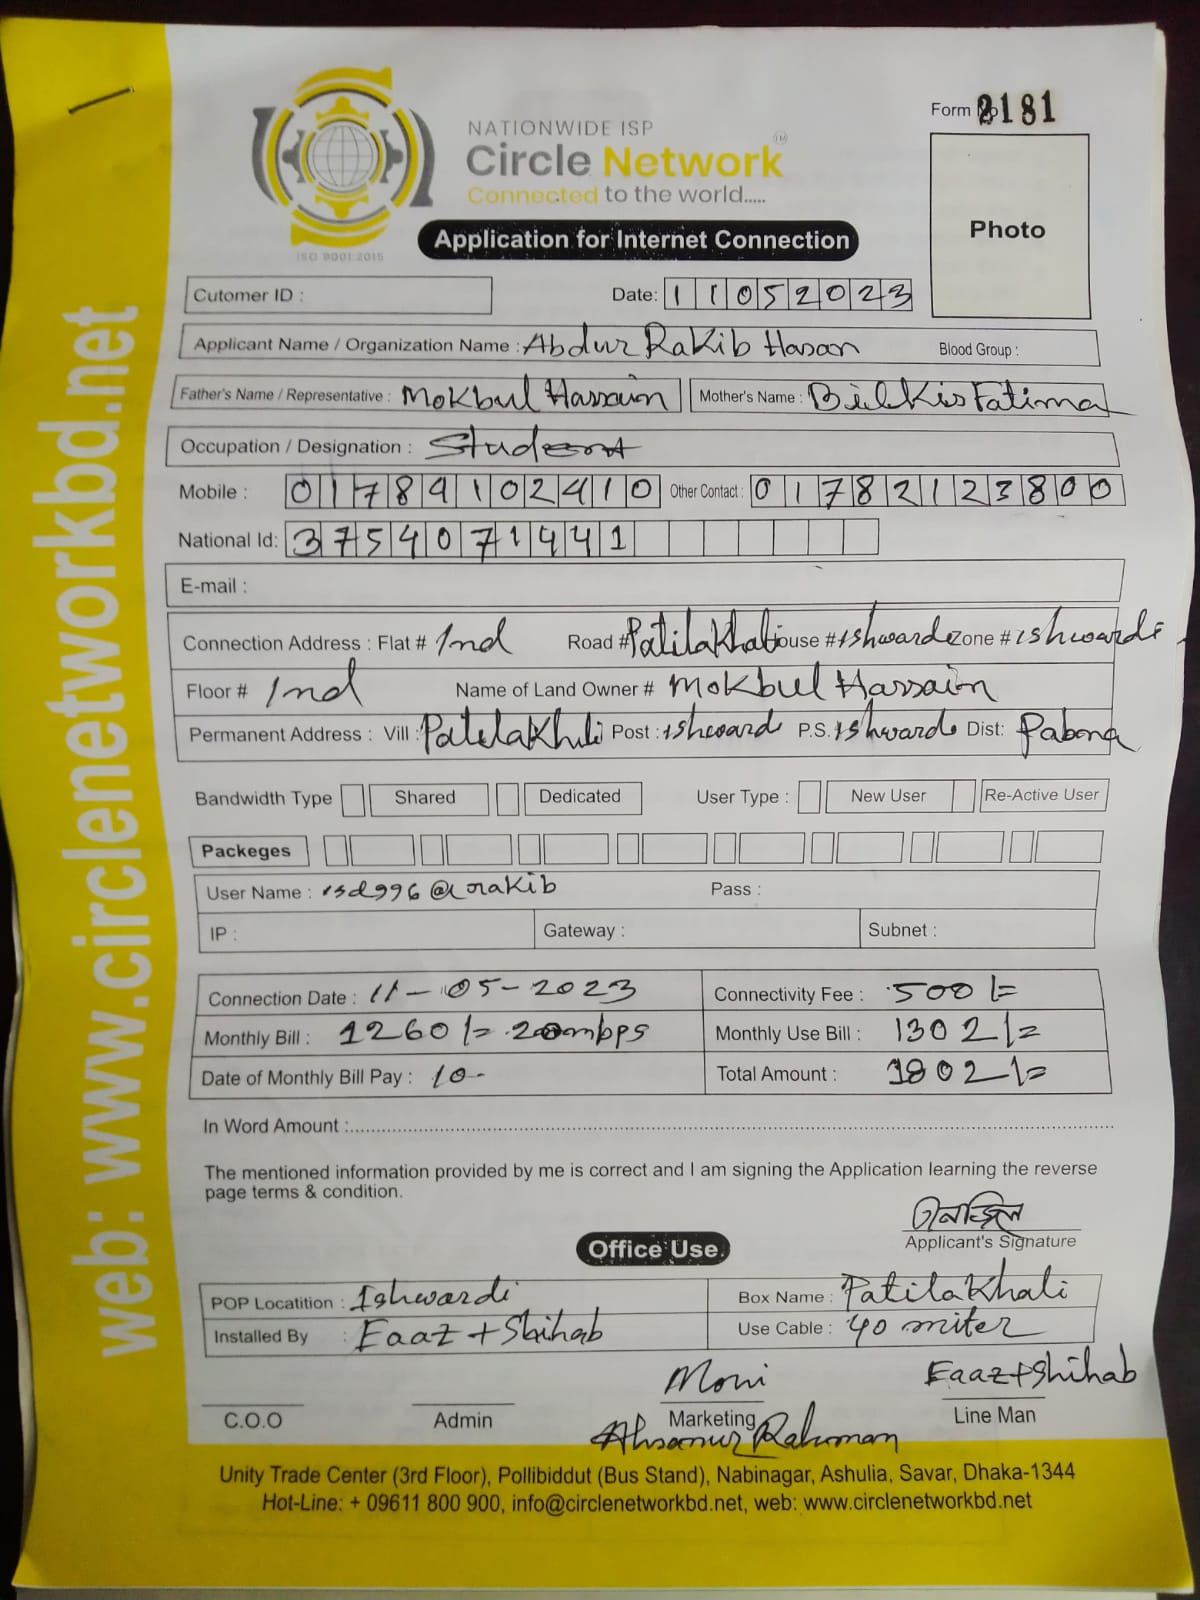 Form No 2181
NATIONWIDE ISP
Circle Network TM
Connected to the world.....
ISO 9001:2015
Application for Internet Connection
Photo
Cutomer ID :
Date: 11052023
Applicant Name / Organization Name : Abdur Rakib Hasan Blood Group :
Father's Name / Representative : Mokbul Hassain Mother's Name : Bilkis Fatima
Occupation / Designation : Student
Mobile : 01789102410 Other Contact : 01782123800
National Id: 3754071441
E-mail :
Connection Address : Flat # 1nd Road # Patilakhali House # ishwardi Zone # ishwardi
Floor # 1nd Name of Land Owner # Mokbul Hassain
Permanent Address : Vill : Patilakhali Post : ishwardi P.S. ishwardi Dist: Pabna
Bandwidth Type Shared Dedicated User Type : New User Re-Active User
Packeges
User Name : isd996@rakib Pass :
IP : Gateway : Subnet :
Connection Date : 11-05-2023 Connectivity Fee : 500/=
Monthly Bill : 1260/= 20mbps Monthly Use Bill : 1302/=
Date of Monthly Bill Pay : 10- Total Amount : 1802/=
In Word Amount :
The mentioned information provided by me is correct and I am signing the Application learning the reverse
page terms & condition.
Applicant's Signature
Office Use
POP Locatition : Ishwardi Box Name : Patilakhali
Installed By : Eaaz + Shihab Use Cable : 40 miter
Moni Eaaz + Shihab
C.O.O Admin Marketing Line Man
Ahsanur Rahman
Unity Trade Center (3rd Floor), Pollibiddut (Bus Stand), Nabinagar, Ashulia, Savar, Dhaka-1344
Hot-Line: + 09611 800 900, info@circlenetworkbd.net, web: www.circlenetworkbd.net
web: www.circlenetworkbd.net